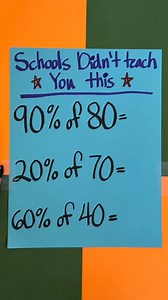 Schools Didn't teach
You this
90% of 80=
20% of 70=
60% of 40=